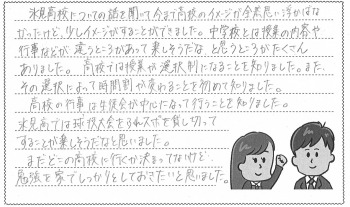 氷見高校についての話を聞いて今まで高校のイメージが全然思い浮かばな
かったけど、少しイメージがすることができました。中学校とは授業の内容や
行事などが違うところがあって楽しそうだな、と思うところがたくさん
ありました。高校では授業が選択制になることを知りました。また、
その選択によって時間割が変わることを初めて知りました。
高校の行事は生徒会が中心になって行うことを知りました。
氷見高では球技大会をふれスポを貸し切って
することが楽しそうだなと思いました。
まだどこの高校に行くか決まってないけど、
勉強を家でしっかりとしておきたいと思いました。